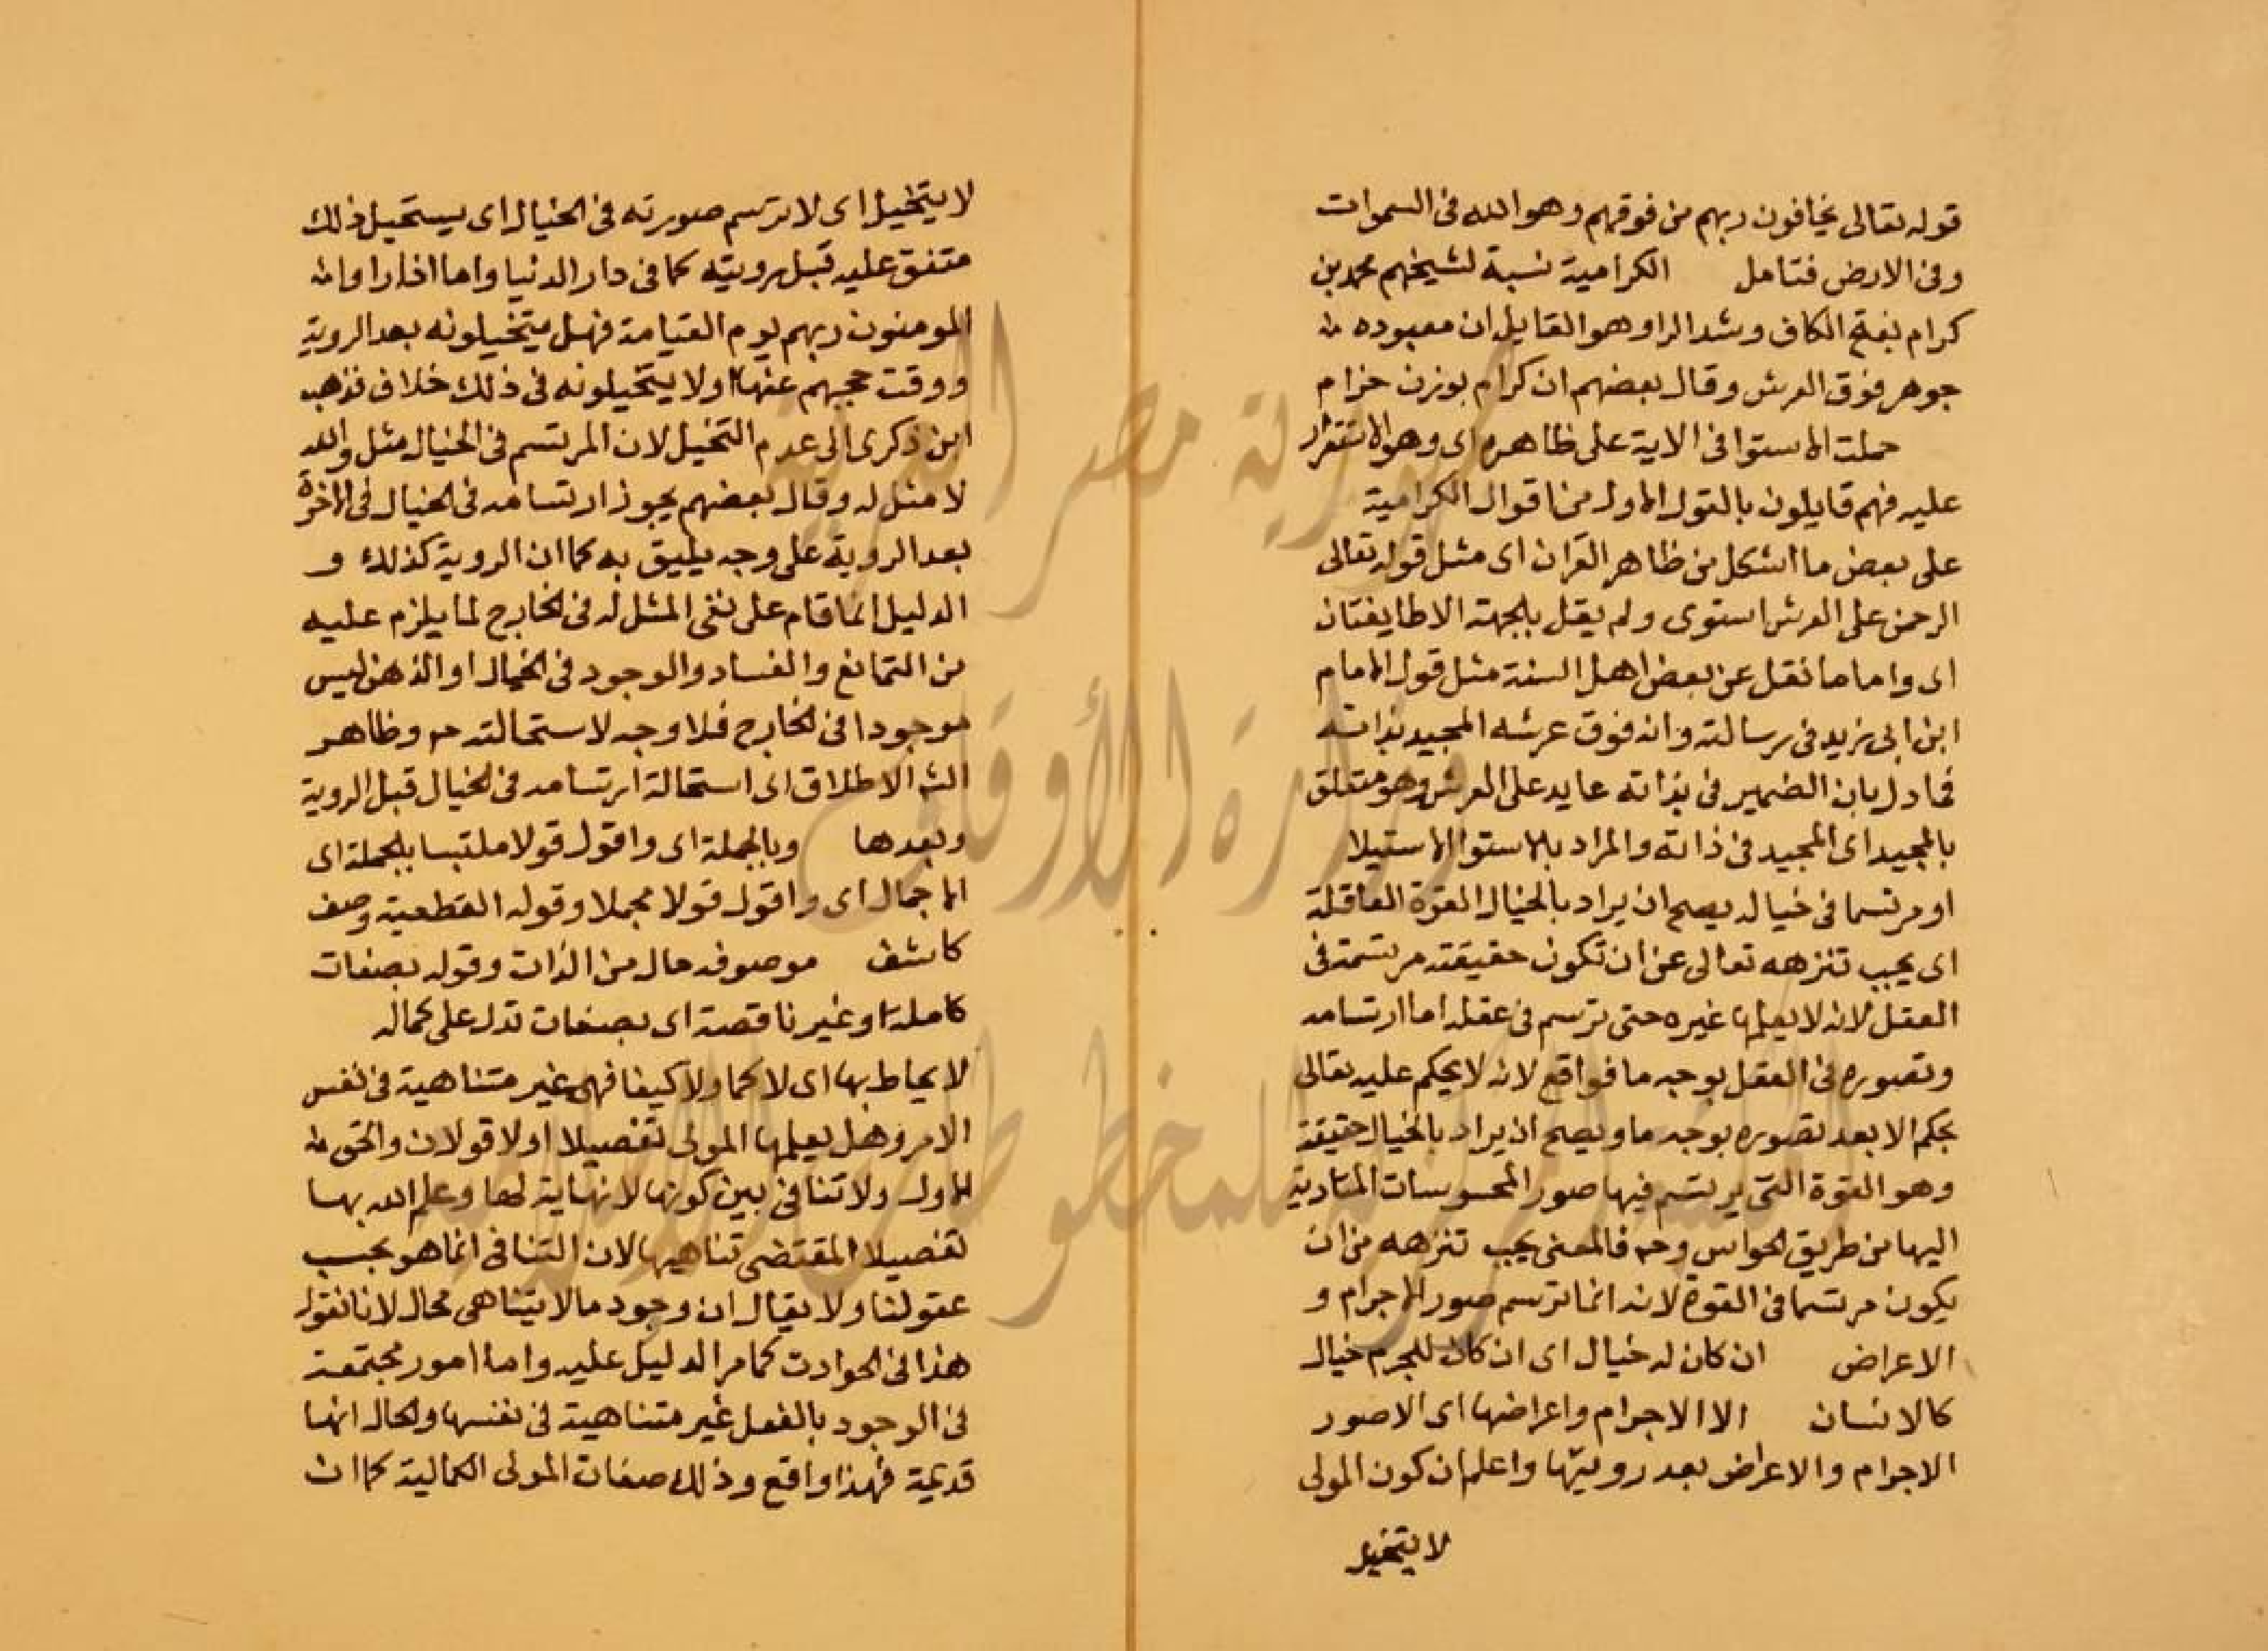 قوله تعالى يخافون ربهم من فوقهم وهو الله فى السموات
وفى الارض فتامل الكرامية نسبة لشيخهم محمد بن
كرام بفتح الكاف وشد الرا وهو القايل ان معبوده
جوهر فوق العرش وقال بعضهم ان كرام بوزن حزام
حملت الاستوا فى الاية على ظاهره اى وهو الاستقرار
عليه فهم قايلون بالقول الاول من اقوال الكرامية
على بعض ما اشكل من ظاهر القران اى مثل قوله تعالى
الرحمن على العرش استوى ولم يقل بالجهة الا طايفتان
اى واما ما نقل عن بعض اهل السنة مثل قول الامام
ابن ابى زيد فى رسالته وانه فوق عرشه المجيد بذاته
فماول بان الضمير فى بذاته عايد على العرش وهو متعلق
بالمجيد اى المجيد فى ذاته والمراد بالاستوا الاستيلا
او مرتسما فى خياله يصح ان يراد بالخيال القوة العاقلة
اى يجب تنزهه تعالى عن ان تكون حقيقته مرتسمة فى
العقل لانه لا يعلمها غيره حتى ترسم فى عقله اما ارتسامه
وتصوره فى العقل بوجه ما فواقع لانه لا يحكم عليه تعالى
بحكم الا بعد تصوره بوجه ما ويصح ان يراد بالخيال حقيقة
وهو القوة التى يرتسم فيها صور المحسوسات المتادية
اليها من طريق الحواس وح فالمعنى يجب تنزهه من ان
يكون مرتسما فى القوة لانه انما ترسم صور الاجرام و
الاعراض ان كان له خيال اى ان كان للجرم خيال
كالانسان الا الاجرام واعراضها اى الا صور
الاجرام والاعراض بعد رويتها واعلم ان كون المولى
لا يتخيل
لا يتخيل اى لا ترسم صورته فى الخيال اى يستحيل ذلك
متفق عليه قبل رويته كما فى دار الدنيا واما اذا راوا
المومنون ربهم يوم القيامة فهل يتخيلونه بعد الروية
ووقت حجبهم عنها اولا يتخيلونه فى ذلك خلاف فذهب
ابن ذكرى الى عدم التخيل لان المرتسم فى الخيال مثل والله
لا مثل له وقال بعضهم يجوز ارتسامه فى الخيال فى الاخرة
بعد الروية على وجه يليق به كما ان الروية كذلك و
الدليل انما قام على نفى المثل له فى الخارج لما يلزم عليه
من التمانع والفساد والوجود فى الخيال او الذهن ليس
موجودا فى الخارج فلا وجه لاستحالته ح وظاهر
الش الاطلاق اى استحالة ارتسامه فى الخيال قبل الروية
وبعدها وبالجملة اى واقول قولا ملتبسا بالجملة اى
الاجمال اى واقول قولا مجملا وقوله القطعية وصف
كاشف موصوفه حال من الذات وقوله بصفات
كاملة او غير ناقصة اى بصفات تدل على كماله
لا يحاط بها اى لا كما ولا كيفا فهى غير متناهية فى نفس
الامر وهل يعلمها المولى تفصيلا اولا قولان والحق
الاول ولا تنافى بين كونها لا نهاية لها وعلم الله بها
تفصيلا المقتضى تناهيها لان التنافى انما هو بحسب
عقولنا ولا يقال ان وجود ما لا يتناهى محال لانا نقول
هذا فى الحوادث كما مر الدليل عليه واما امور مجتمعة
فى الوجود بالفعل غير متناهية فى نفسها والحال انها
قديمة فهذا واقع وذلك صفات المولى الكمالية كما ان